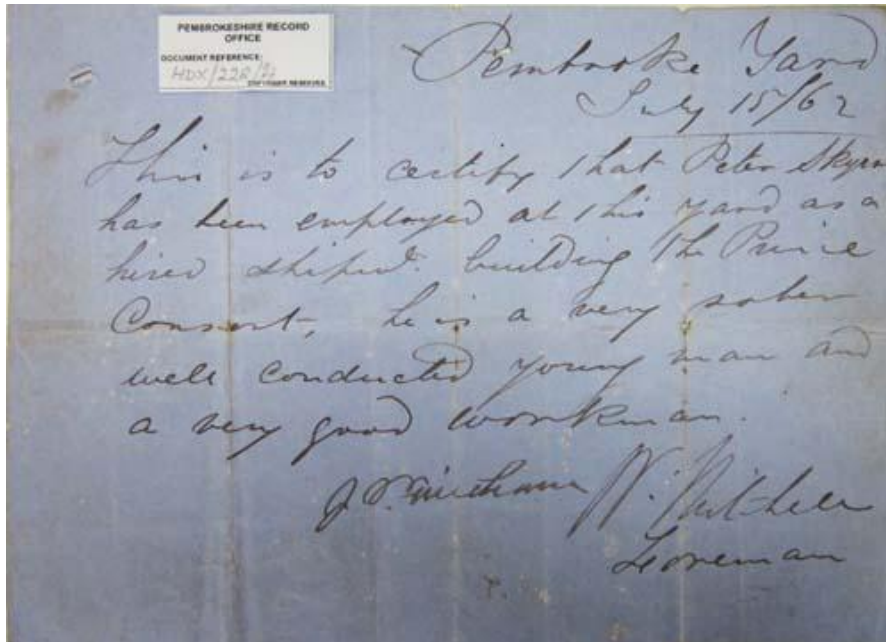 PEMBROKESHIRE RECORD
OFFICE
DOCUMENT REFERENCE:
HDX/220/
COPYRIGHT RESERVED
Pembroke Yard
July 15/62
This is to certify that Peter
has been employed at this yard as a
hired shipwt. building the Prince
Consort, he is a very sober
well conducted young man and
a very good workman.
W. Mitchell
Foreman